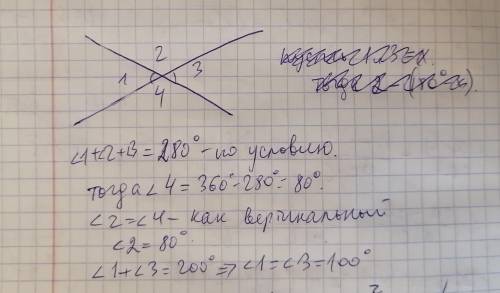 2
1
3
4
∠1+∠2+∠3=280° - по условию.
тогда ∠4=360°-280°=80°.
∠2=∠4 - как вертикальный
∠2=80°.
∠1+∠3=200° => ∠1=∠3=100°